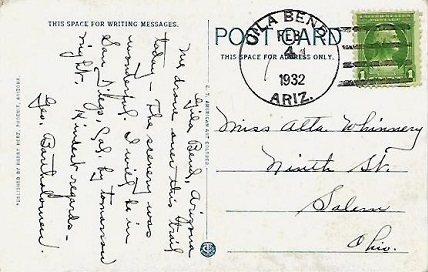 THIS SPACE FOR WRITING MESSAGES.
Gila Bend, Arizona
We drove over this trail
today – The scenery was
wonderful. I will be in
San Diego, Cal. by tomorrow
night. Kindest regards –
Geo. Bartholomew.
PUBLISHED BY HARRY HERZ, PHOENIX, ARIZONA.
C. T. AMERICAN ART COLORED
POST CARD
THIS SPACE FOR ADDRESS ONLY.
GILA BEND
FEB
4
1932
ARIZ.
1 1
Miss Alta Whinnery
Ninth St.
Salem
Ohio.